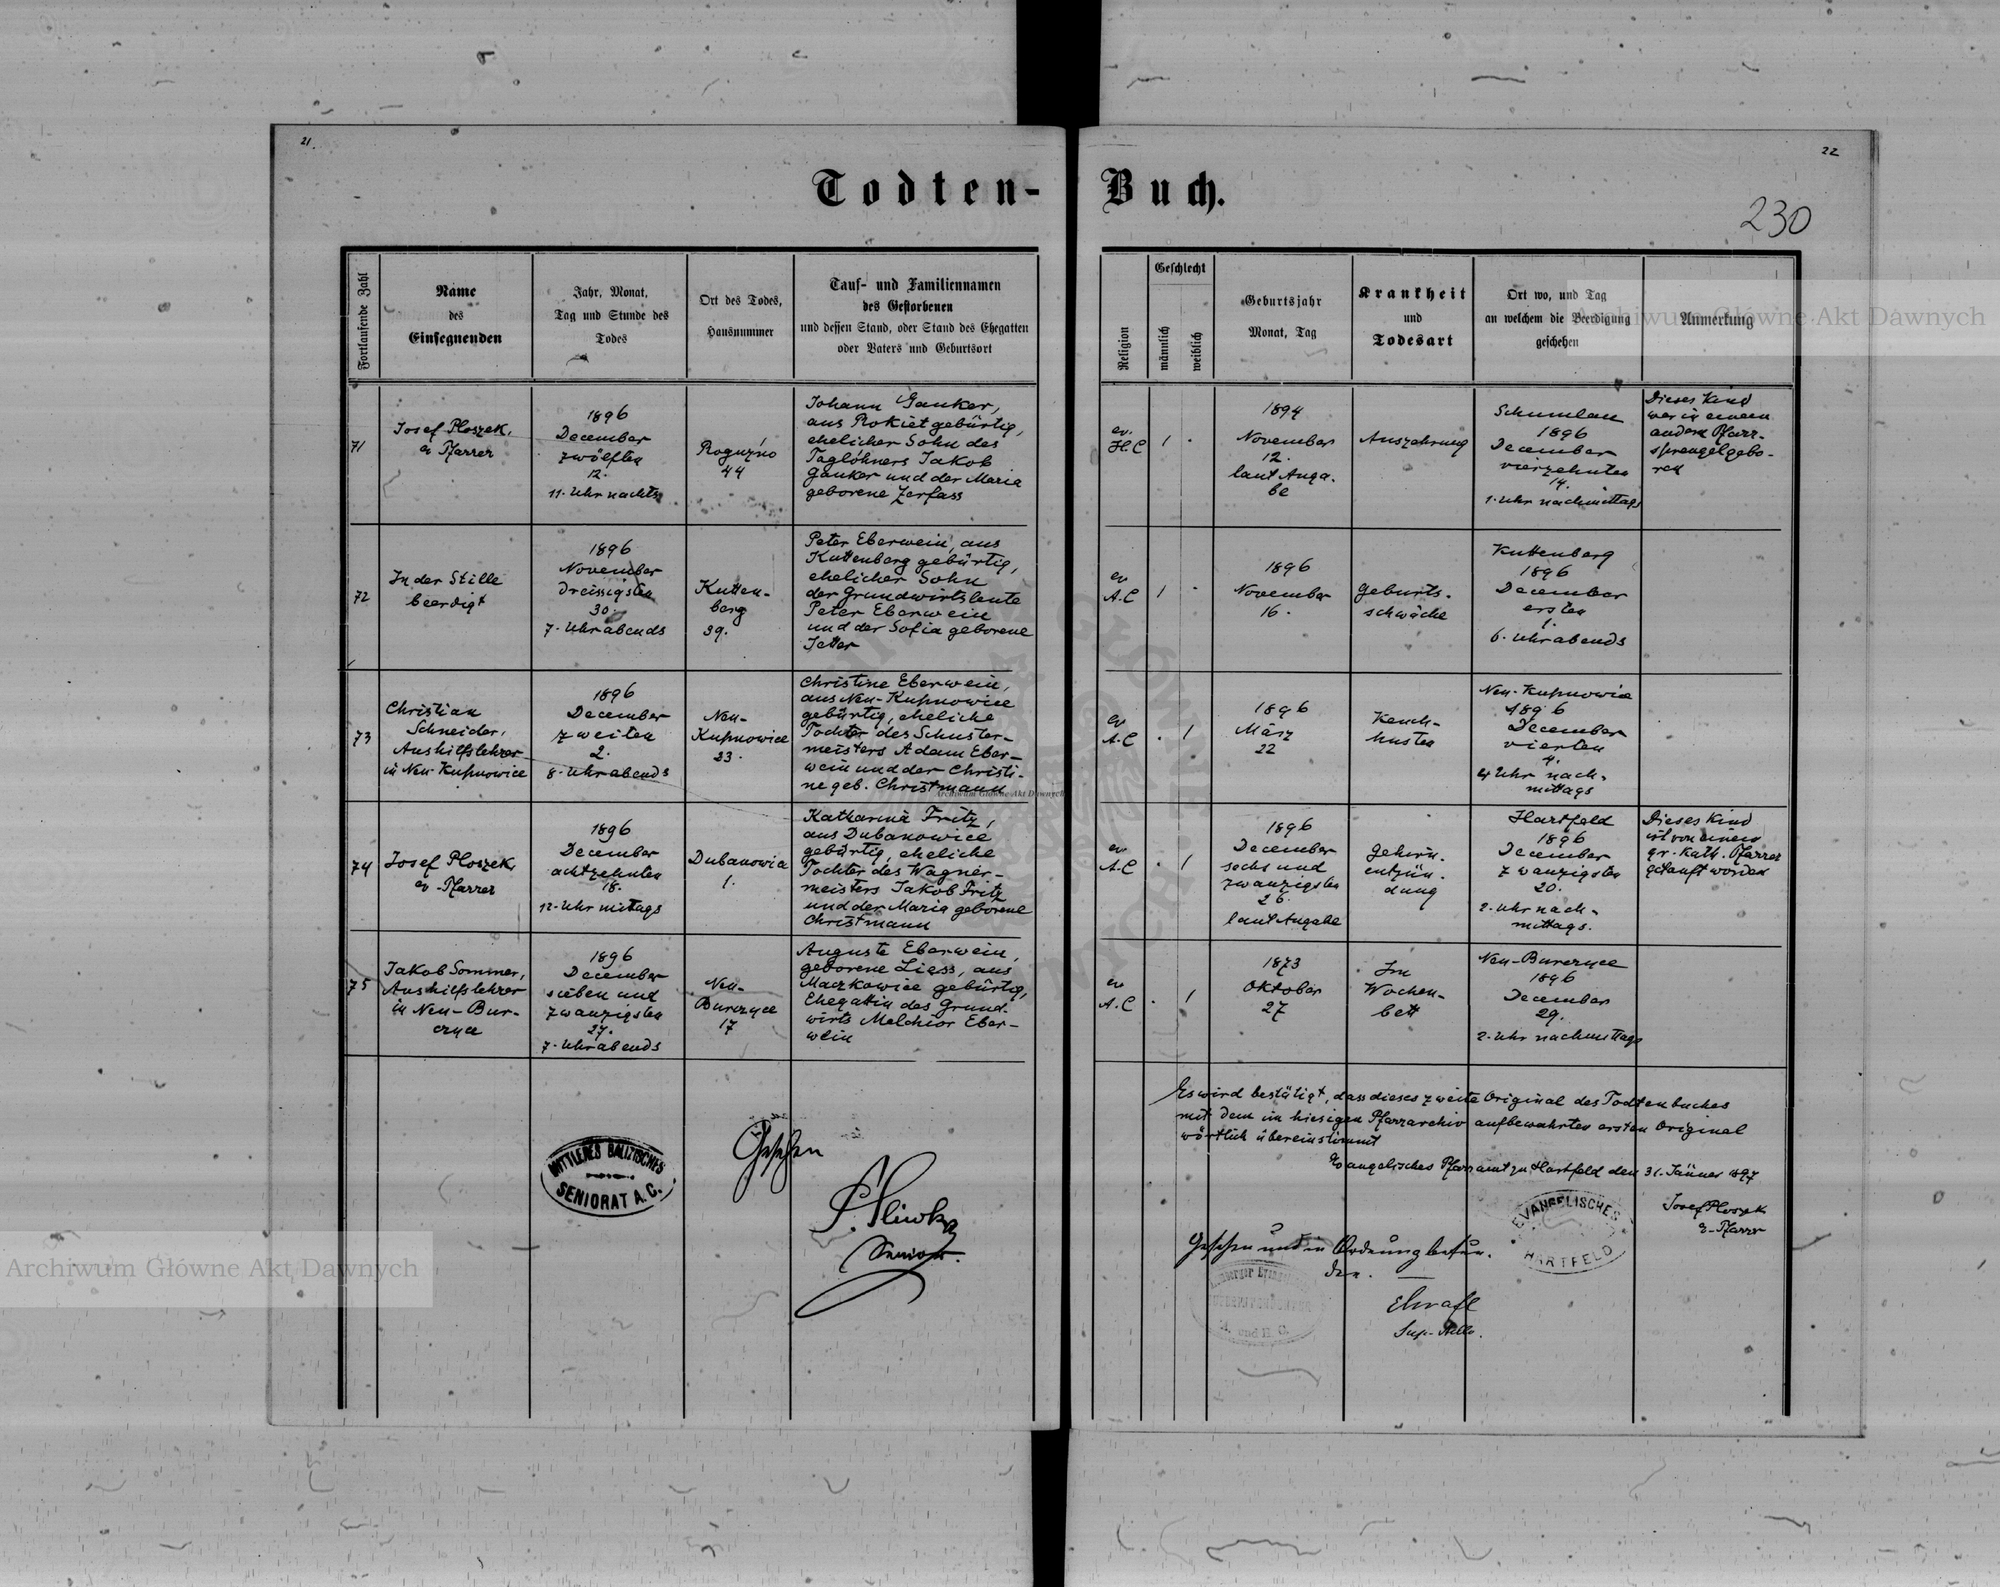 21.
22
Todten-Buch.
230
Fortlaufende Zahl
Name
des
Einsegnenden
Jahr, Monat,
Tag und Stunde des
Todes
Ort des Todes,
Hausnummer
Tauf- und Familiennamen
des Gestorbenen
und dessen Stand, oder Stand des Ehegatten
oder Vaters und Geburtsort
Religion
Geschlecht
männlich
weiblich
Geburtsjahr
Monat, Tag
Krankheit
und
Todesart
Ort wo, und Tag
an welchem die Beerdigung
geschehen
Anmerkung
71
Josef Ploszek,
ev Pfarrer
1896
December
zwölften
12.
11. Uhr nachts
Roguźno
44
Johann Ganker,
aus Rokiet gebürtig,
ehelicher Sohn des
Taglöhners Jakob
Ganker und der Maria
geborene Zerfass
ev.
H.C
1
.
1894
November
12.
laut Anga-
be
Auszehrung
Schumlau
1896
December
vierzehnten
14.
1. Uhr nachmittags
Dieses Kind
war in einem
andern Pfarr-
sprengel gebo-
ren
72
In der Stille
beerdigt
1896
November
dreissigsten
30.
7. Uhr abends
Kutten-
berg
39.
Peter Eberwein, aus
Kuttenberg gebürtig,
ehelicher Sohn
der Grundwirtsleute
Peter Eberwein
und der Sofia geborene
Jetter
ev
A.C
1
.
1896
November
16.
Geburts-
schwäche
Kuttenberg
1896
December
ersten
1.
6. Uhr abends
73
Christian
Schneider,
Aushilfslehrer
in Neu-Kupnowice
1896
December
zweiten
2.
8. Uhr abends
Neu-
Kupnowice
23.
Christine Eberwein,
aus Neu-Kupnowice
gebürtig, eheliche
Tochter des Schuster-
meisters Adam Eber-
wein und der Christi-
ne geb. Christmann
ev
A.C
.
1
1896
März
22
Keuch-
husten
Neu-Kupnowice
1896
December
vierten
4.
Uhr nach-
mittags
74
Josef Ploszek,
ev-Pfarrer
1896
December
achtzehnten
18.
12. Uhr mittags
Dubanowice
1.
Katharina Fritz,
aus Dubanowice
gebürtig, eheliche
Tochter des Wagner-
meisters Jakob Fritz
und der Maria geborene
Christmann
ev
A.C
.
1
1896
December
sechs und
zwanzigsten
26.
laut Angabe
Gehirn-
entzün-
dung
Hartfeld
1896
December
zwanzigsten
20.
2. Uhr nach-
mittags.
Dieses Kind
ist von einem
gr. kath. Pfarrer
getauft worden
75
Jakob Sommer,
Aushilfslehrer
in Neu-Bur-
czyce
1896
December
sieben und
zwanzigsten
27.
7. Uhr abends
Neu-
Burczyce
17
Auguste Eberwein,
geborene Liess, aus
Maczkowice gebürtig,
Ehegattin des Grund-
wirts Melchior Eber-
wein
ev
A.C
.
1
1873
Oktober
27
Im
Wochen-
bett
Neu-Burczyce
1896
December
29.
2. Uhr nachmittags
Es wird bestätigt, dass dieses zweite Original des Todtenbuches
mit dem im hiesigen Pfarrarchiv aufbewahrten ersten Original
wörtlich übereinstimmt
Evangelisches Pfarramt zu Hartfeld den 31. Jänner 1897
Josef Ploszek
ev-Pfarrer
EVANGELISCHES
HARTFELD
MITTLERES GALIZISCHES
SENIORAT A.C.
Gesehen
Senior.
Gesehen und in Ordnung befun-
den.
A. und H. C.
Archiwum Główne Akt Dawnych
Archiwum Główne Akt Dawnych
Archiwum Główne Akt Dawnych